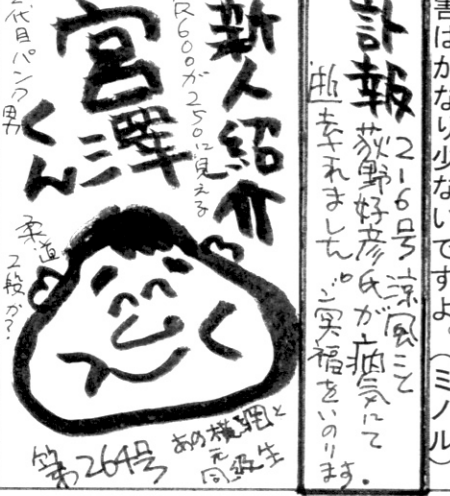 害はかなり少ないですよ。(ミノル)
訃報
216号涼風こと
荻野好彦氏が病気にて
逝去されました。ご冥福をいのります。
新人紹介
R600が250に見える
宮澤
くん
代目パンク男
柔道
2段か?
あの横綱と
元同級生
第264号